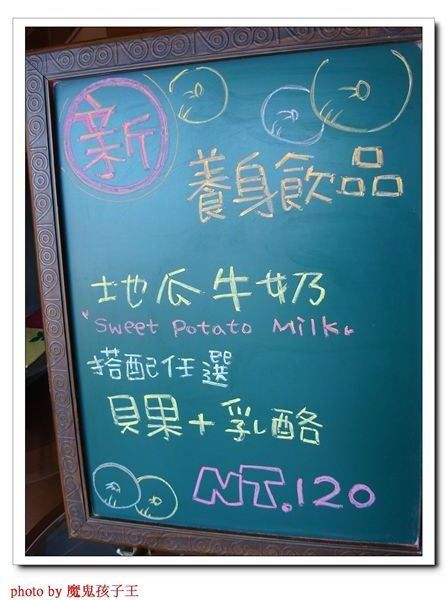 新
養身飲品
地瓜牛奶
"Sweet Potato Milk"
搭配任選
貝果+乳酪
NT.120
photo by 魔鬼孩子王